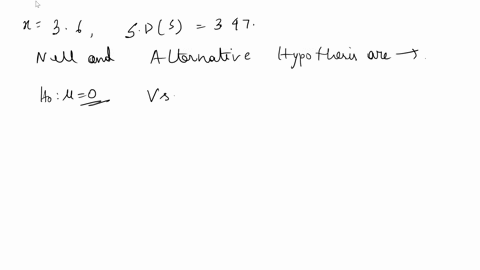 x = 3.6, S.D(s) = 3.97.
Null and Alternative Hypothesis are →.
H0: μ = 0 Vs